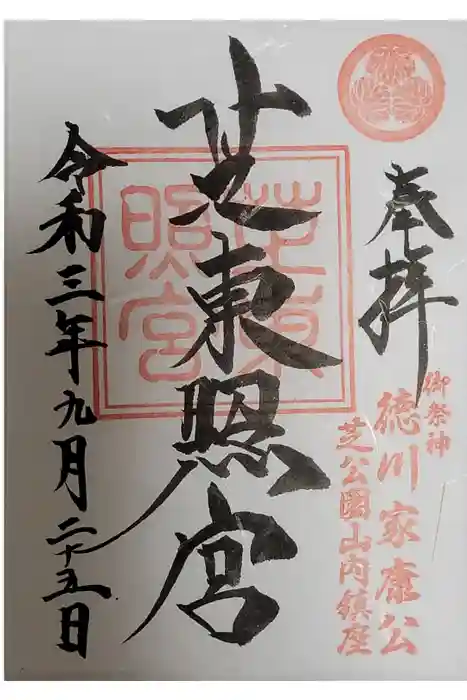 奉拝
御祭神
徳川家康公
芝公園山内鎮座
芝東照宮
芝東照宮
令和三年九月二十五日